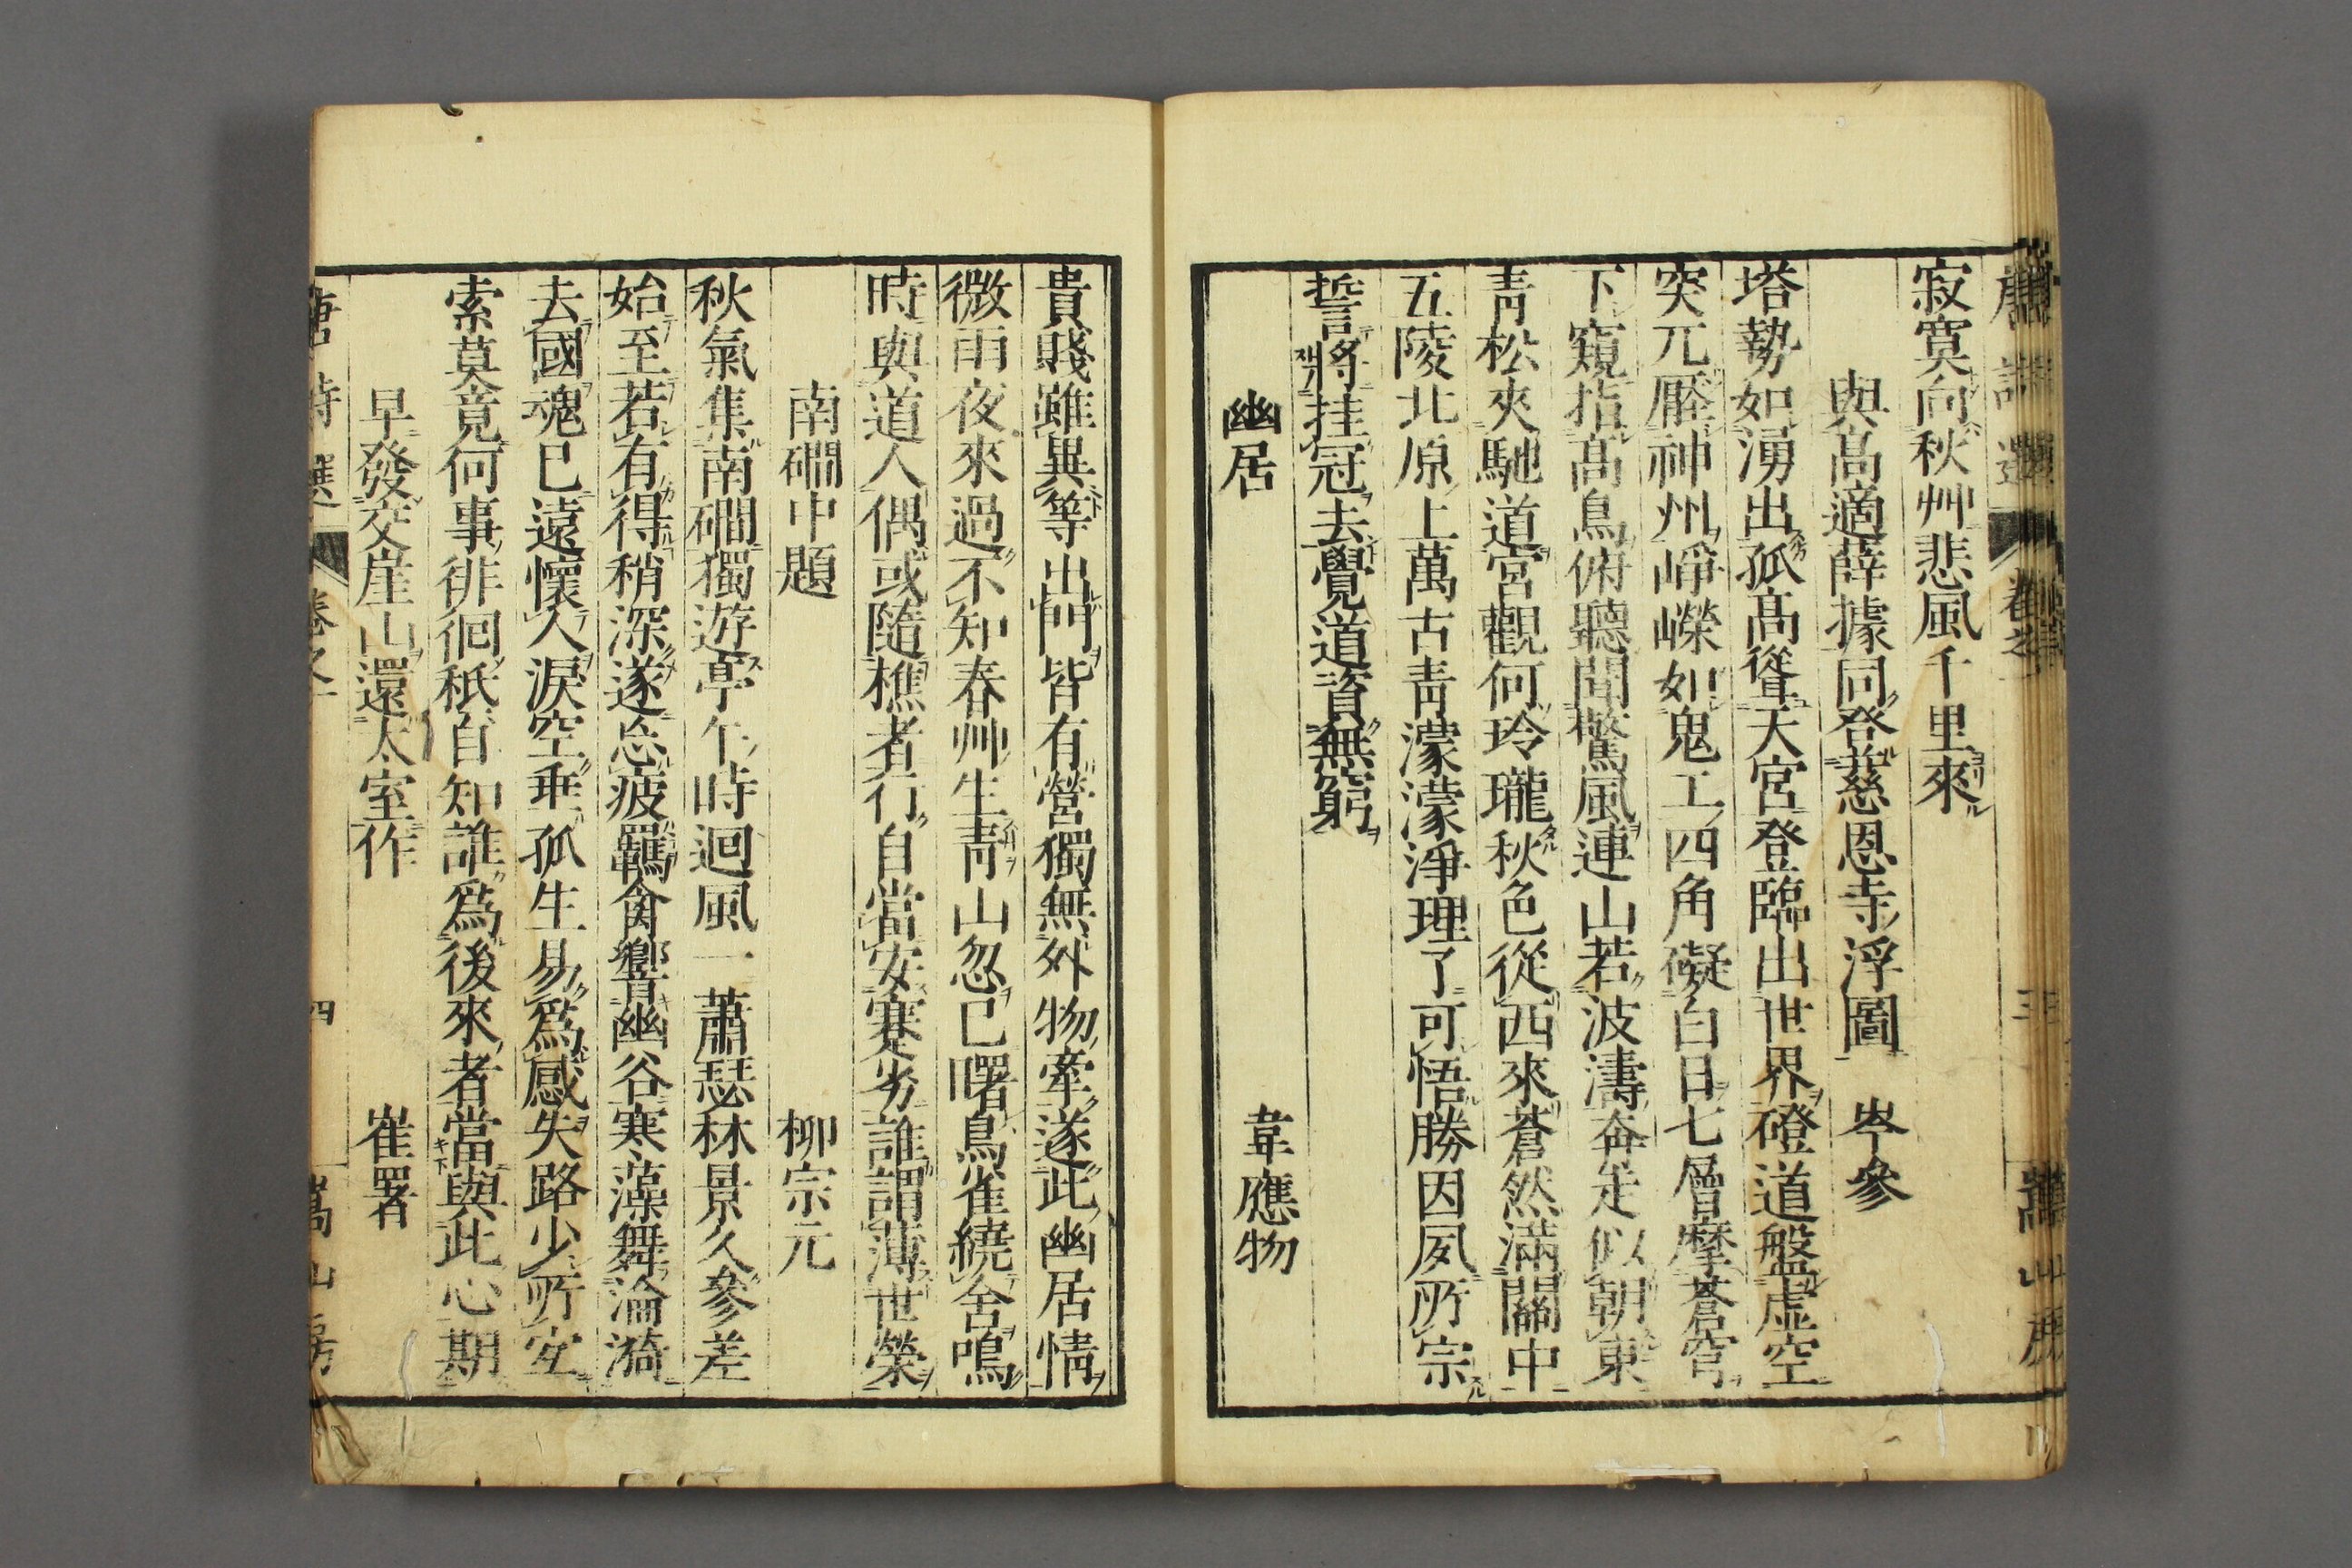 寂寞向秋艸悲風千里來
與髙適薛據同登慈恩寺浮圖 岑參
塔勢如湧出孤髙聳天宮登臨出世界磴道盤虛空
突兀壓神州崢嶸如鬼工四角礙白日七層摩蒼穹
下窺指髙鳥俯聽聞驚風連山若波濤奔走似朝東
靑松夾馳道宮觀何玲瓏秋色從西來蒼然滿關中
五陵北原上萬古靑濛濛淨理了可悟勝因夙所宗
誓將挂冠去覺道資無窮
幽居 韋應物
貴賤雖異等出門皆有營獨無外物牽遂此幽居情
微雨夜來過不知春艸生靑山忽已曙鳥雀繞舍鳴
時與道人偶或隨樵者行自當安蹇劣誰謂薄世榮
南磵中題 柳宗元
秋氣集南磵獨遊亭午時迴風一蕭瑟林景久參差
始至若有得稍深遂忘疲羈禽響幽谷寒藻舞淪漪
去國魂已遠懷人淚空垂孤生易爲感失路少所宜
索莫竟何事徘徊秖自知誰爲後來者當與此心期
早發交崖山還太室作 崔署
唐詩選 卷之一 四 嵩山房